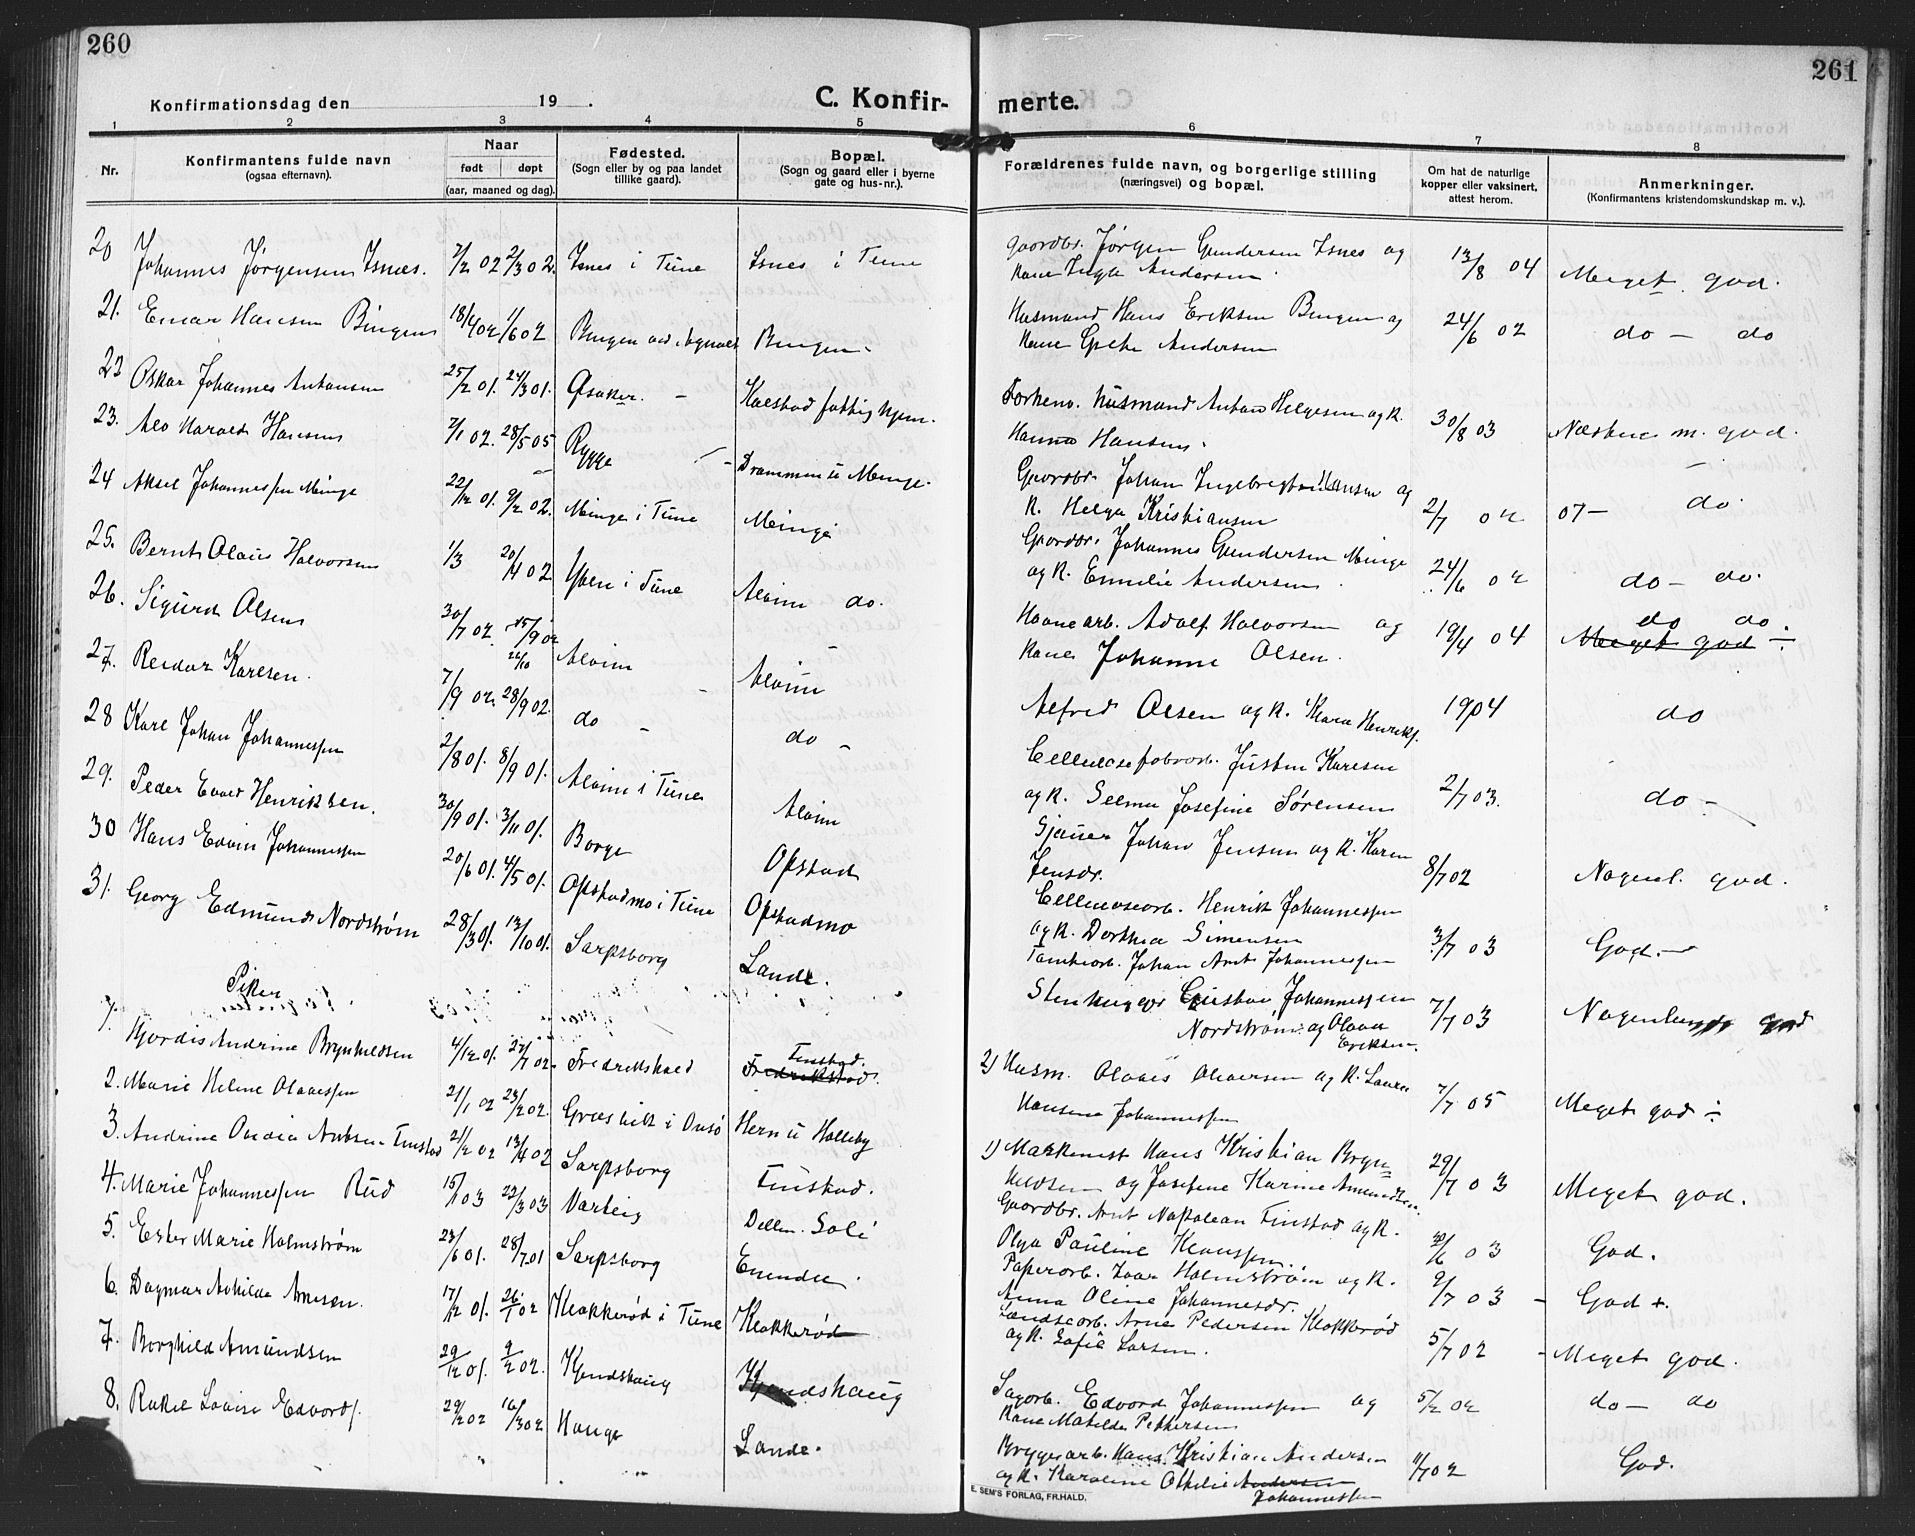 260
Konfirmationsdag den 19 .
C. Konfir-
1 2 3 4 5
Nr.
Konfirmantens fulde navn
(ogsaa efternavn).
Naar
født døpt
(aar, maaned og dag).
Fødested.
(Sogn eller by og paa landet
tillike gaard).
Bopæl.
(Sogn og gaard eller i byerne
gate og hus-nr.).
20 Johannes Jørgensen Isnes. 7/2 02 2/3 02. Isnes i Tune Isnes i Tune
21. Einar Hansen Bingen 18/4 02 1/6 02 Bingen Bingen
22 Oskar Johannes Antonsen 25/2 01. 24/3 01. Kalstad fattighjem.
23. Alv Harald Hansen 7/1 02. 28/5 05 Rygge Drammen u Minge.
24 Aksel Johannessen Minge 22/12 01. 9/2 02. Minge i Tune Minge
25. Bernt Olaus Halvorsen 1/3 20/4 02 Yven i Tune Alvim do.
26. Sigurd Olsen 30/7 02. 15/9 02 Alvim Alvim
26/10
27. Reidar Karlsen. 7/9 02. 28/9 02. do - do -
28 Karl Johan Johannessen 2/8 01. 8/9 01. Alvim i Tune Alvim
29. Peder Henriksen. 30/9 01. 3/11 01. Borge Opstad
30 Hans Edvin Johannessen 20/6 01. 4/5 01. Opstadmo i Tune Opstadmo
31. Georg Edmund Nordstrøm 28/3 01. 13/10 01. Sarpsborg Lande.
Piker
1. Hjørdis Andrine Brynhildsen 4/12 01. 27/7 02. Fredrikshald Tinstad.
Fredrikstad.
2. Marie Helene Olavessen 21/1 02 23/2 02. Græsvik i Onsø Hern u Holleby
3. Andrine Tinstad 21/2 02 13/4 02 Sarpsborg Tinstad.
4. Marie Johannessen Rud 15/1 03 22/3 03 Varteig Sole
5. Ester Marie Holmstrøm 23/6 01. 28/7 01 Sarpsborg Enende
6. Dagmar Arnesen. 17/12 01. 26/1 02 Klokkerød i Tune Klokkerød
7. Borghild Amundsen 29/12 01. 9/2 02. Kjendshaug Kjendshaug
8. Rakel Lovise Edvards. 29/2 02 16/3 02 Hauge Lande.
261
merte.
6 7 8
Forældrenes fulde navn, og borgerlige stilling
(næringsvei) og bopæl.
Om hat de naturlige
kopper eller vaksinert,
attest herom.
Anmerkninger.
(Konfirmantens kristendomskundskap m. v.).
Gaardbr. Jørgen Gundersen Isnes og
Kone Inga Andersen. 13/8 04 Meget god.
Husmand Hans Eriksen Bingen og
Kone Grethe Andersen 24/6 02 do - do
Forhenv. husmand Anton Helgesen og k.
Hanna Hansen. 30/8 03 Næsten m. god.
Gaardbr. Johan Ingebregt Hansen og
k. Helga Kristiansen 2/7 02 07- do.
Gaardbr. Johannes Gundersen Minge
og k. Emilie Andersen. 24/6 02 do - do.
do do.
Havnearb. Adolf Halvorsen og
Kone Johanne Olsen. 19/4 04 Meget god
Alfred Olsen og k. Klara Henriks. 1904 do
Cellulosefabrarb. Justin Karlsen
og k. Selma Josefine Sørensen 2/7 03. do -
Sjauer Johan Jensen og k. Karen
Jensdr. 8/7 02 Nogenl. god.
Cellulosearb. Henrik Johannessen
og k. Dorthea Simensen 3/7 03 God.
Tomtearb. Johan Arnt Johannessen
Stenhugger Gustav Johannessen
Nordstrøm og Olava
Eriksen. 7/7 03 Nogenlunde god
2) Husm. Olaves Olaversen og k. Laura
Hansine Johannessen 7/7 05 Meget god
1) Maskinist Hans Kristian Bryn-
hildsen og Josefine Karine Amundsen. 29/7 03 Meget god.
Gaardbr. Arnt Napolean Tinstad og k.
Olga Pauline Klaussen. 20/6 03 God.
Papirarb. Ivar Holmstrøm og k.
Anna Oline Johannesdr. 9/7 03 - God +.
Landsearb. Arne Pedersen Klokkerød
og k. Sofie Larsen. 5/7 02 - Meget god.
Sagarb. Edvard Johannessen og
Kone Matilde Pettersen 5/2 02 do - do
Bryggearb. Hans Kristian Andersen
og k. Karoline Othilie Andersen
Johannessen 11/7 02 God.
E. SEM'S FORLAG, FR.HALD.